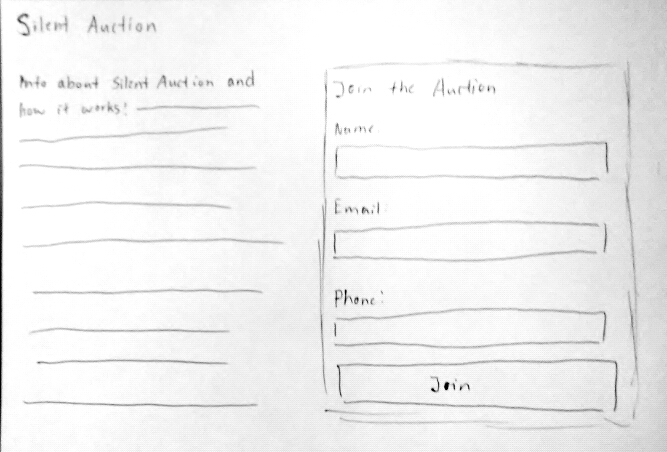 Silent Auction
Info about Silent Auction and
how it works!
Join the Auction
Name:
Email:
Phone:
Join